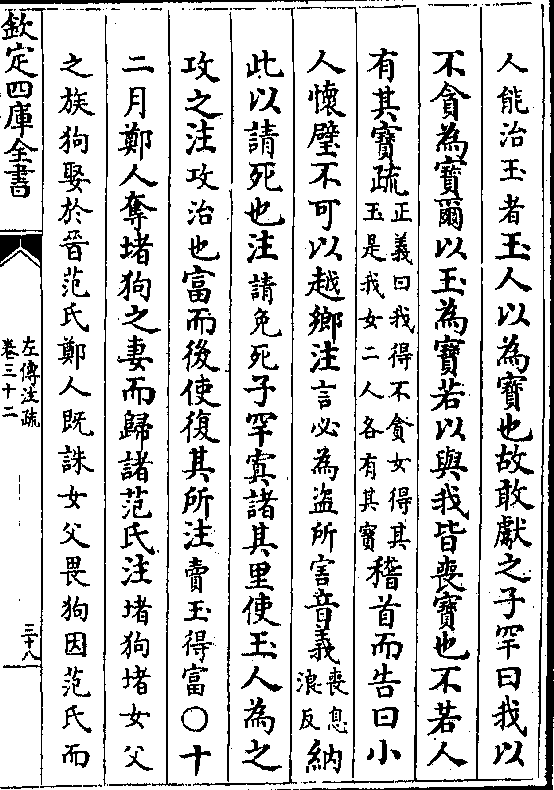 人能治玉者玉人以為寶也故敢獻之子罕曰我以
不貪為寶爾以玉為寶若以與我皆喪寶也不若人
有其寶疏正義曰我得不貪女得其玉是我女二人各有其寶稽首而告曰小
人懷璧不可以越鄉注言必為盜所害音義喪息浪反納
此以請死也注請免死子罕寘諸其里使玉人為之
攻之注攻治也富而後使復其所注賣玉得富○十
二月鄭人奪堵狗之妻而歸諸范氏注堵狗堵女父
之族狗娶於晉范氏鄭人既誅女父畏狗因范氏而
欽定四庫全書
左傳注疏
卷三十二
三十八